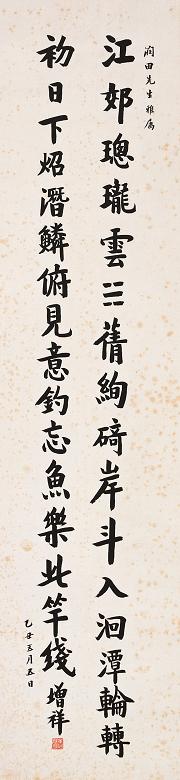 潤田先生雅属
江郊璁瓏雲☵蒨絢碕岸斗入洄潭輪轉
初日下炤潛鱗俯見意釣忘魚樂此竿綫 增祥
乙丑五月五日